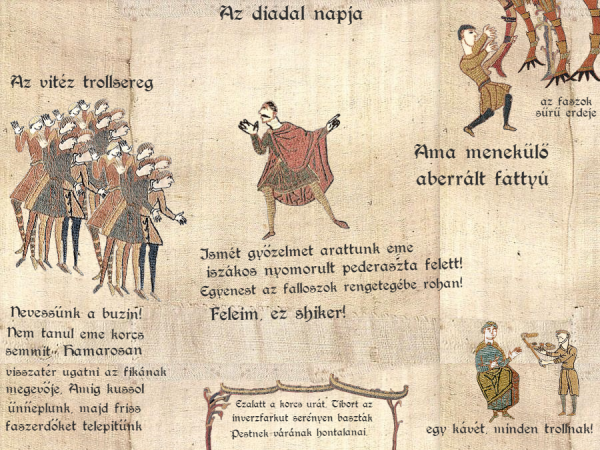 Az diadal napja
Az vitéz trollsereg
az faszok
sűrű erdeje
Ama menekülő
aberrált fattyú
Ismét győzelmet arattunk eme
iszákos nyomorult pederaszta felett!
Egyenest az falloszok rengetegébe rohan!
Feleim, ez shiker!
Nevessünk a buzin!
Nem tanul eme korcs
semmit. Hamarosan
visszatér ugatni az fikának
megevője. Amíg kussol
ünneplünk, majd friss
faszerdőket telepítünk
Ezalatt a korcs urát, Tibort az
inverzfarkut serényen baszták
Pestnek várának hontalanai.
egy kávét, minden trollnak!